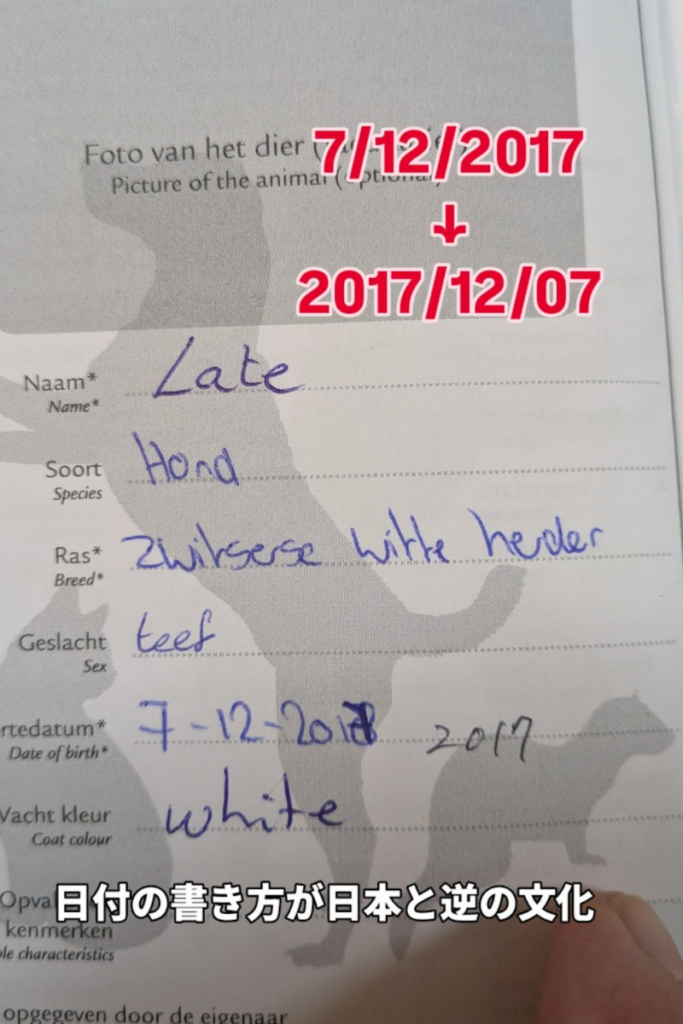 Foto van het dier (
7/12/2017
Picture of the animal (optional)
↓
2017/12/07
Naam* Late
Name*
Soort Hond
Species
Ras* Zwitserse witte herder
Breed*
Geslacht teef
Sex
rtedatum* 7-12-2017 2017
Date of birth*
Vacht kleur white
Coat colour
Opva
日付の書き方が日本と逆の文化
kenmerken
le characteristics
opgegeven door de eigenaar